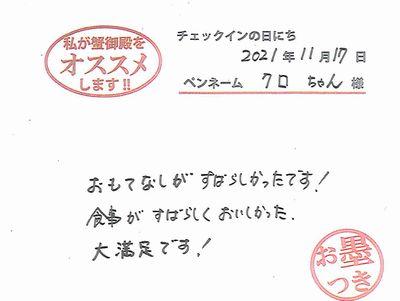 私が蟹御殿を
オススメ
します!!
チェックインの日にち
2021年11月17日
ペンネーム クロ ちゃん 様
おもてなしが すばらしかったです!
食事が すばらしく おいしかった.
大満足です!
お墨
つき